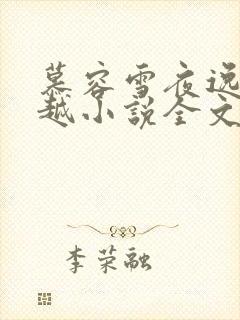 慕容雪夜逸
越小说全文
李荣融